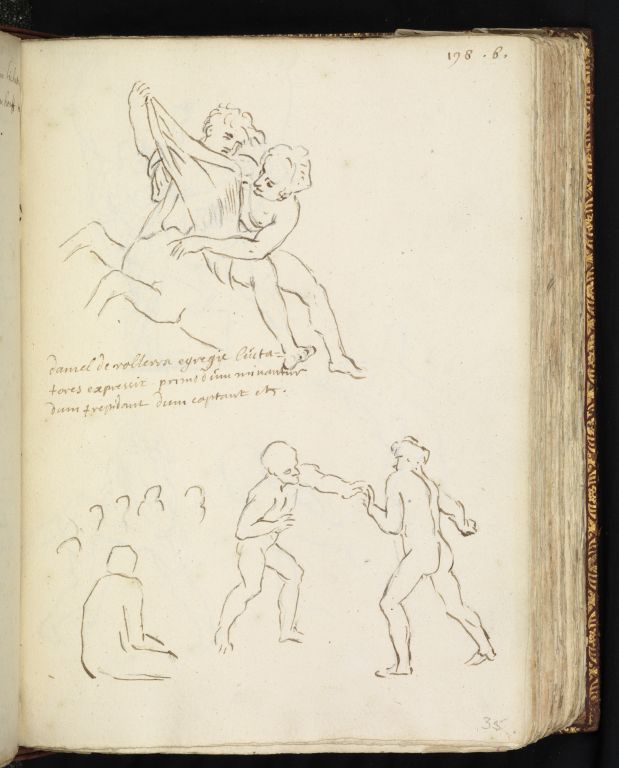 198 . b.
daniel de vollerra egregie lucta=
tores expressit primo dum minantur
dum trepidant dum captant etc.
35